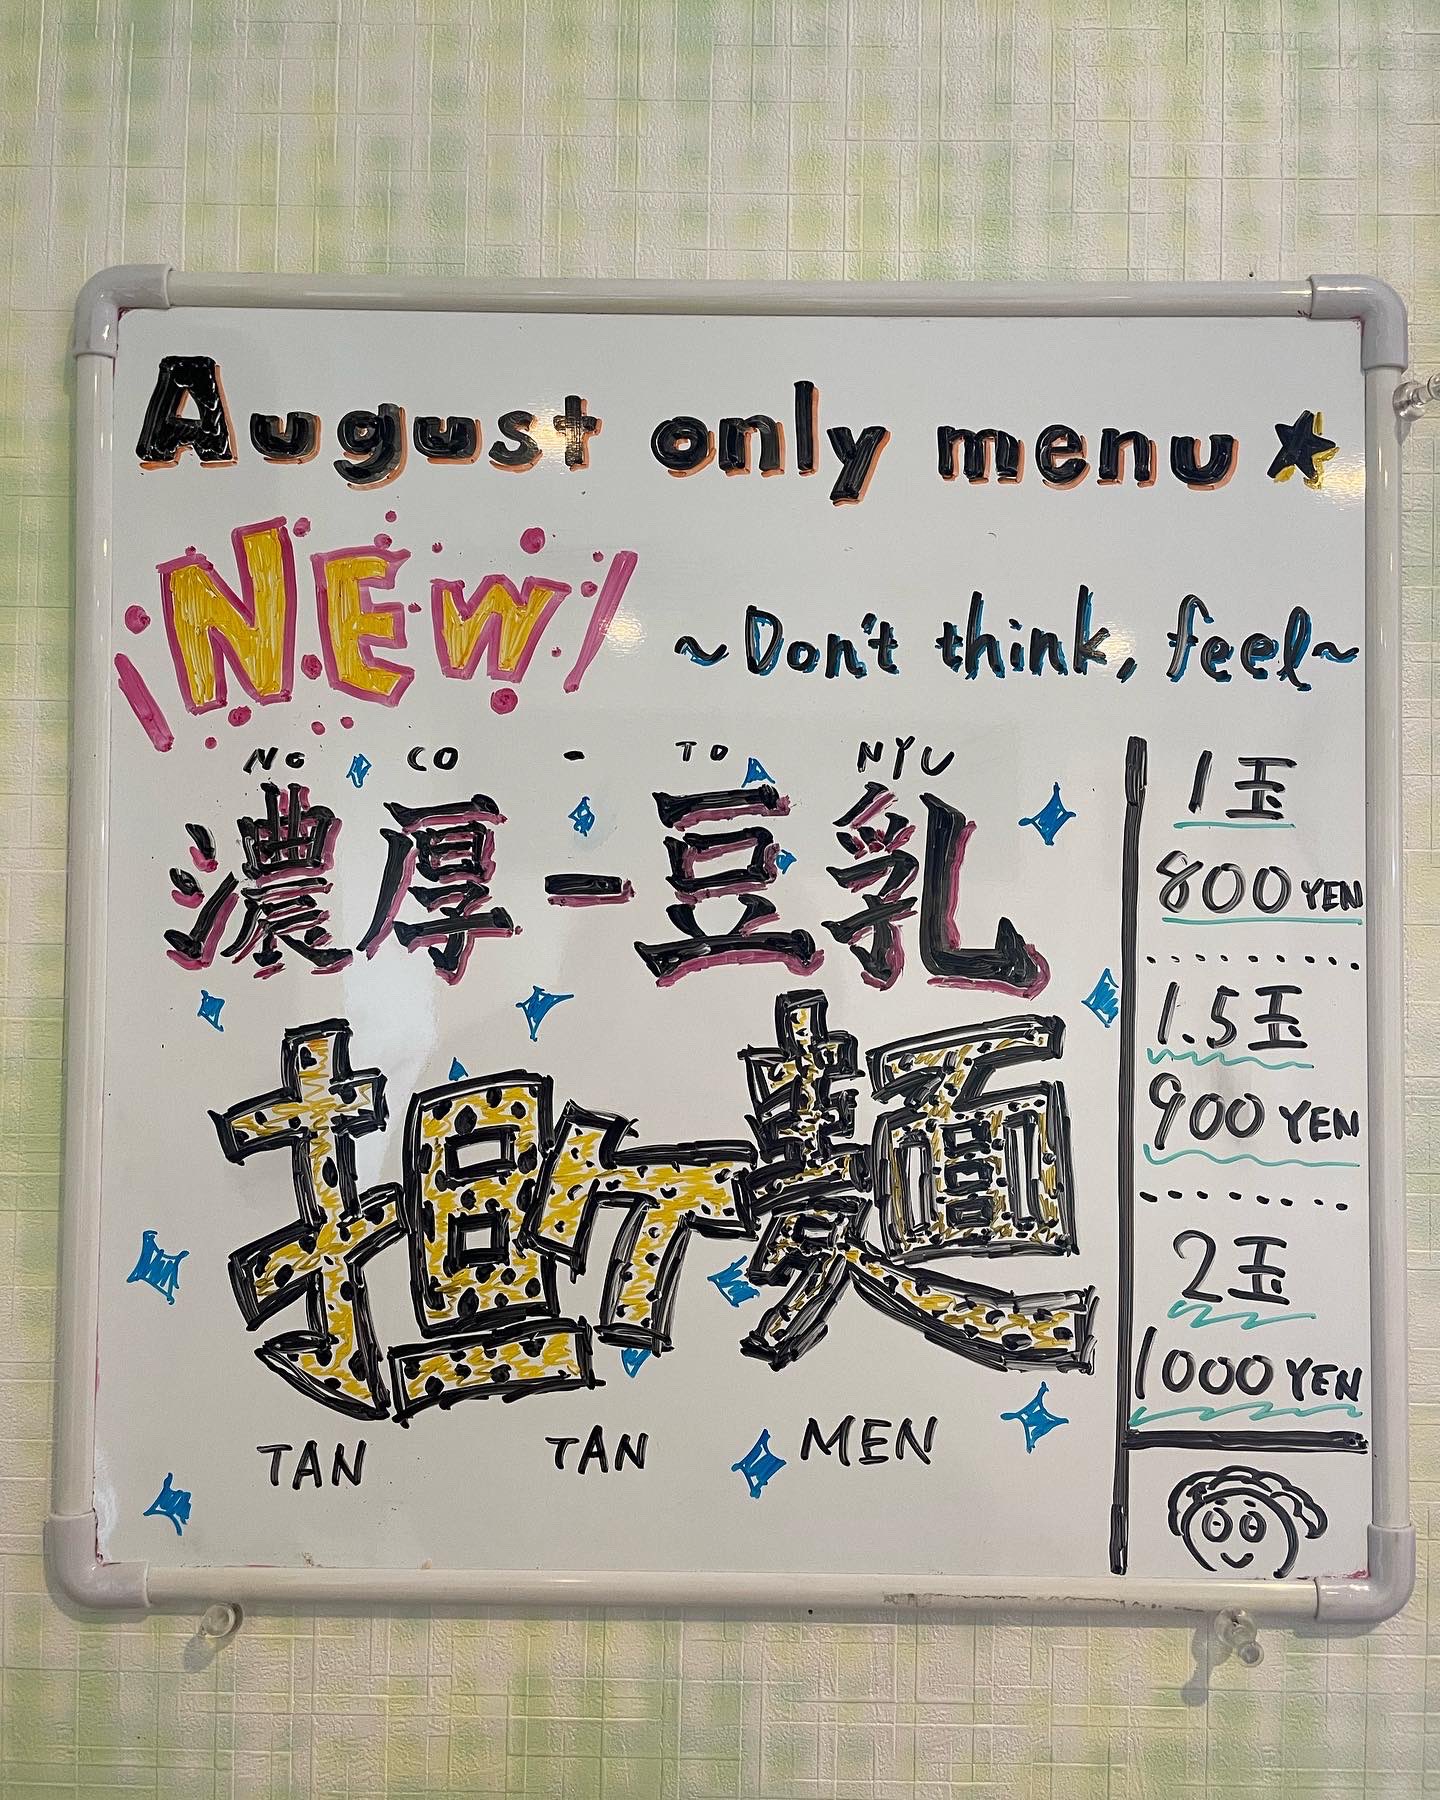 August only menu★
NEW
~Don't think, feel~
NO CO - TO NYU
濃厚-豆乳
担々麺
TAN TAN MEN
1玉
800 YEN
1.5玉
900 YEN
2玉
1000 YEN